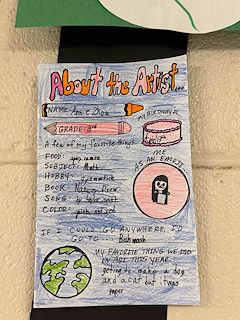 About the Artist...
NAME: Annie
GRADE: 3rd
MY BIRTHDAY IS
A few of my favorite things:
FOOD:
SUBJECT: Math
HOBBY:
BOOK: Nancy Drew
SONG: by taylor swift
COLOR: pink and red
ME
AS AN EMOJI
IF I COULD GO ANYWHERE, I'D
GO TO ...
MY FAVORITE THING WE DID
IN ART THIS YEAR
getting to make a dog
and a cat out
paper